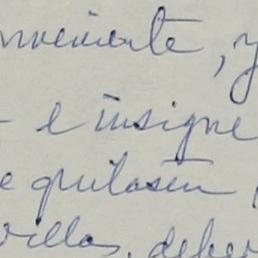 nveniente, y
e insigne
e quitasen
villas, deber